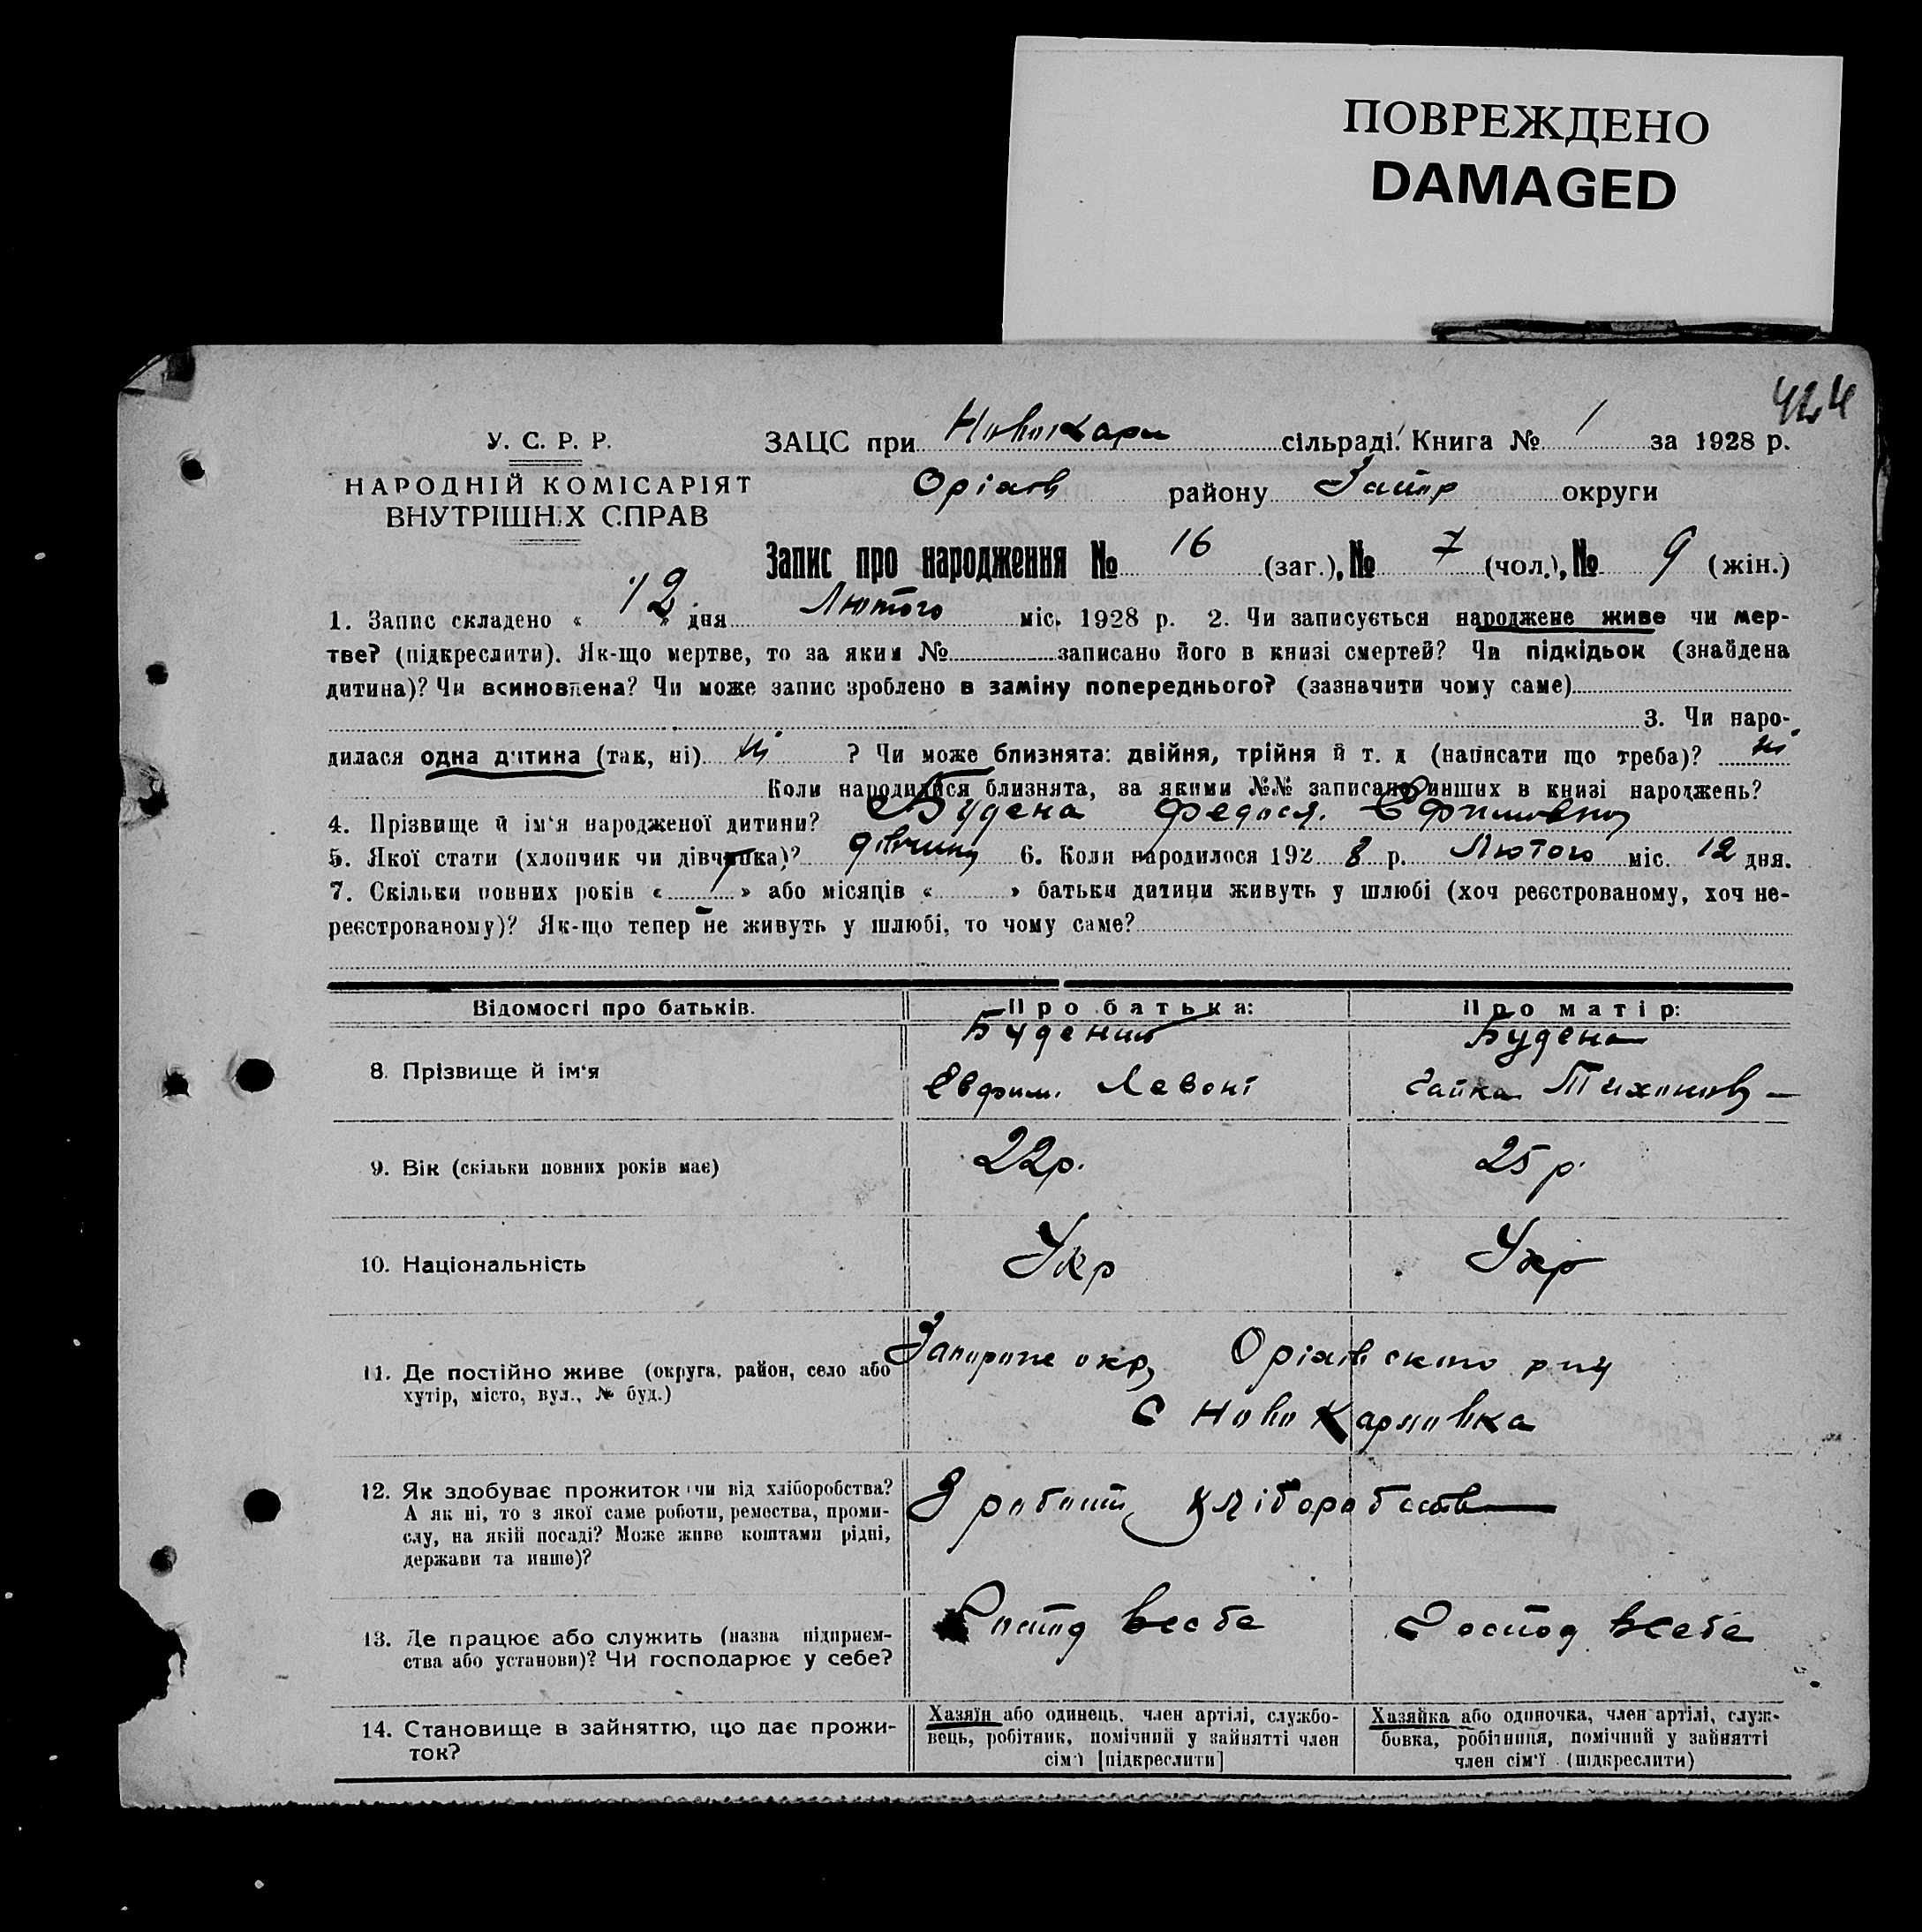 ПОВРЕЖДЕНО
DAMAGED
424
У. С. Р. Р.
ЗАЦС при Новокарп сільраді Книга № 1 за 1928 р.
НАРОДНІЙ КОМІСАРІЯТ
ВНУТРІШНІХ СПРАВ
Оріхів району Запор округи
Запис про народження № 16 (заг.), № 7 (чол.), № 9 (жін.)
1. Запис складено « 12 » дня Лютого міс. 1928 р. 2. Чи записується народжене живе чи мер-
тве? (підкреслити). Як-що мертве, то за яким № записано його в книзі смертей? Чи підкідьок (знайдена
дитина)? Чи всиновлена? Чи може запис зроблено в заміну попереднього? (зазначити чому саме)
3. Чи наро-
дилася одна дитина (так, ні) ні ? Чи може близнята: двійня, трійня й т. д (написати що треба)? ні
Коли народилися близнята, за якими №№ записано инших в книзі народжень?
4. Прізвище й ім'я народженої дитини? Будена Федося Ефримовна
5. Якої стати (хлопчик чи дівчинка)? дівчина 6. Коли народилося 192 8 р. Лютого міс. 12 дня.
7. Скільки повних років « 1 » або місяців « » батьки дитини живуть у шлюбі (хоч реєстрованому, хоч не-
реєстрованому)? Як-що тепер не живуть у шлюбі, то чому саме?
Відомості про батьків. Про батька: Про матір:
Будений Будена
8. Прізвище й ім'я
Евфим Левонт Тихонов
9. Вік (скільки повних років має) 22р. 25 р.
10. Національність Укр Укр
Запороже окр Оріхівского р-ну
11. Де постійно живе (округа, район, село або
хутір, місто, вул., № буд.)
С Ново Карповка
12. Як здобуває прожиток чи від хліборобства?
А як ні, то з якої саме роботи, ремества, проми-
слу, на якій посаді? Може живе коштами рідні,
держави та инше)?
З работи хліборобств
Господ всебе Господ всебе
13. Де працює або служить (назва підприєм-
ства або установи)? Чи господарює у себе?
14. Становище в зайняттю, що дає прожи-
ток?
Хазяїн або одинець, член артілі, службо-
вець, робітник, помічний у зайнятті член
сім'ї [підкреслити]
Хазяйка або одиночка, член артілі, служ-
бовка, робітниця, помічний у зайнятті
член сім'ї (підкреслити)